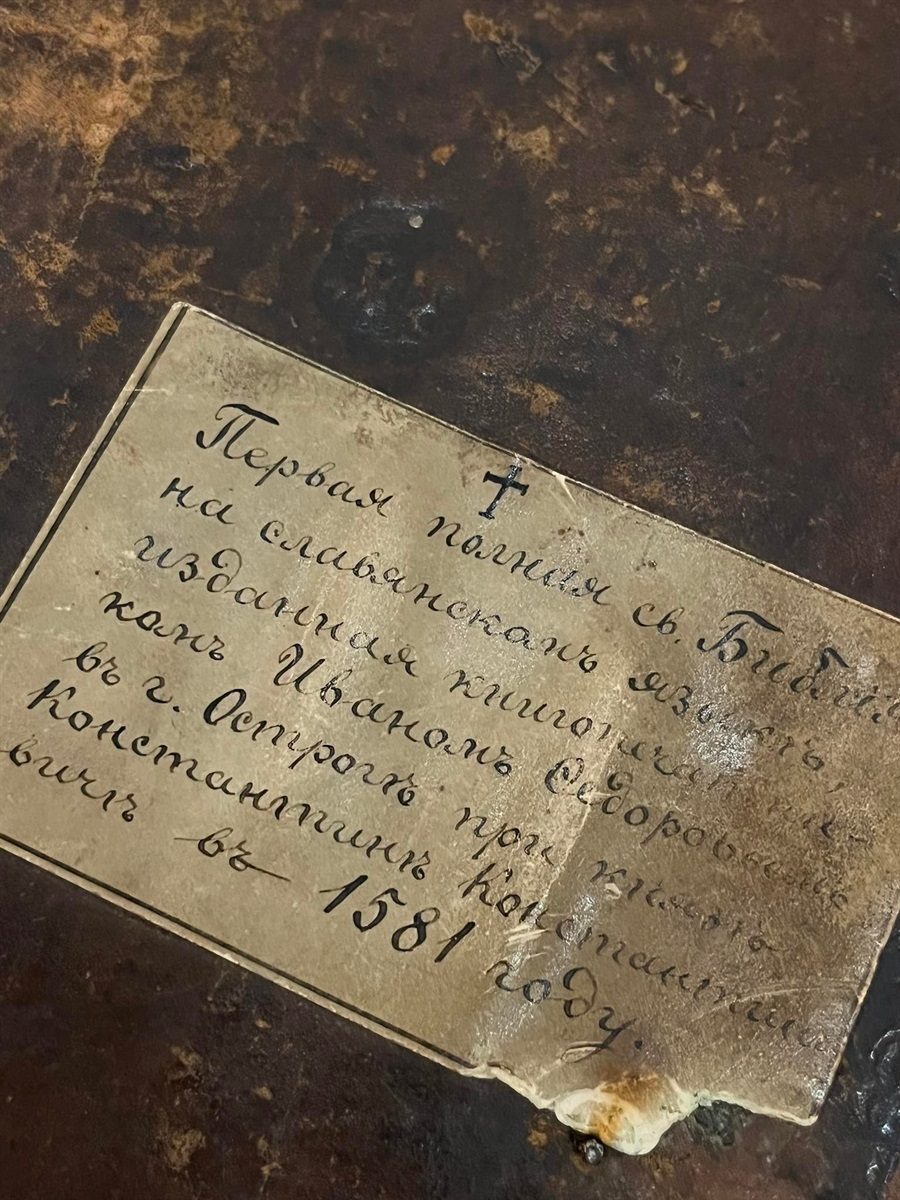 Первая полная св. Библія
на славянскомъ языкѣ,
изданная книгопечатни-
комъ Иваномъ Ѳедоровымъ
въ г. Острогѣ при князѣ
Константинѣ Константино
вичѣ въ 1581 году.